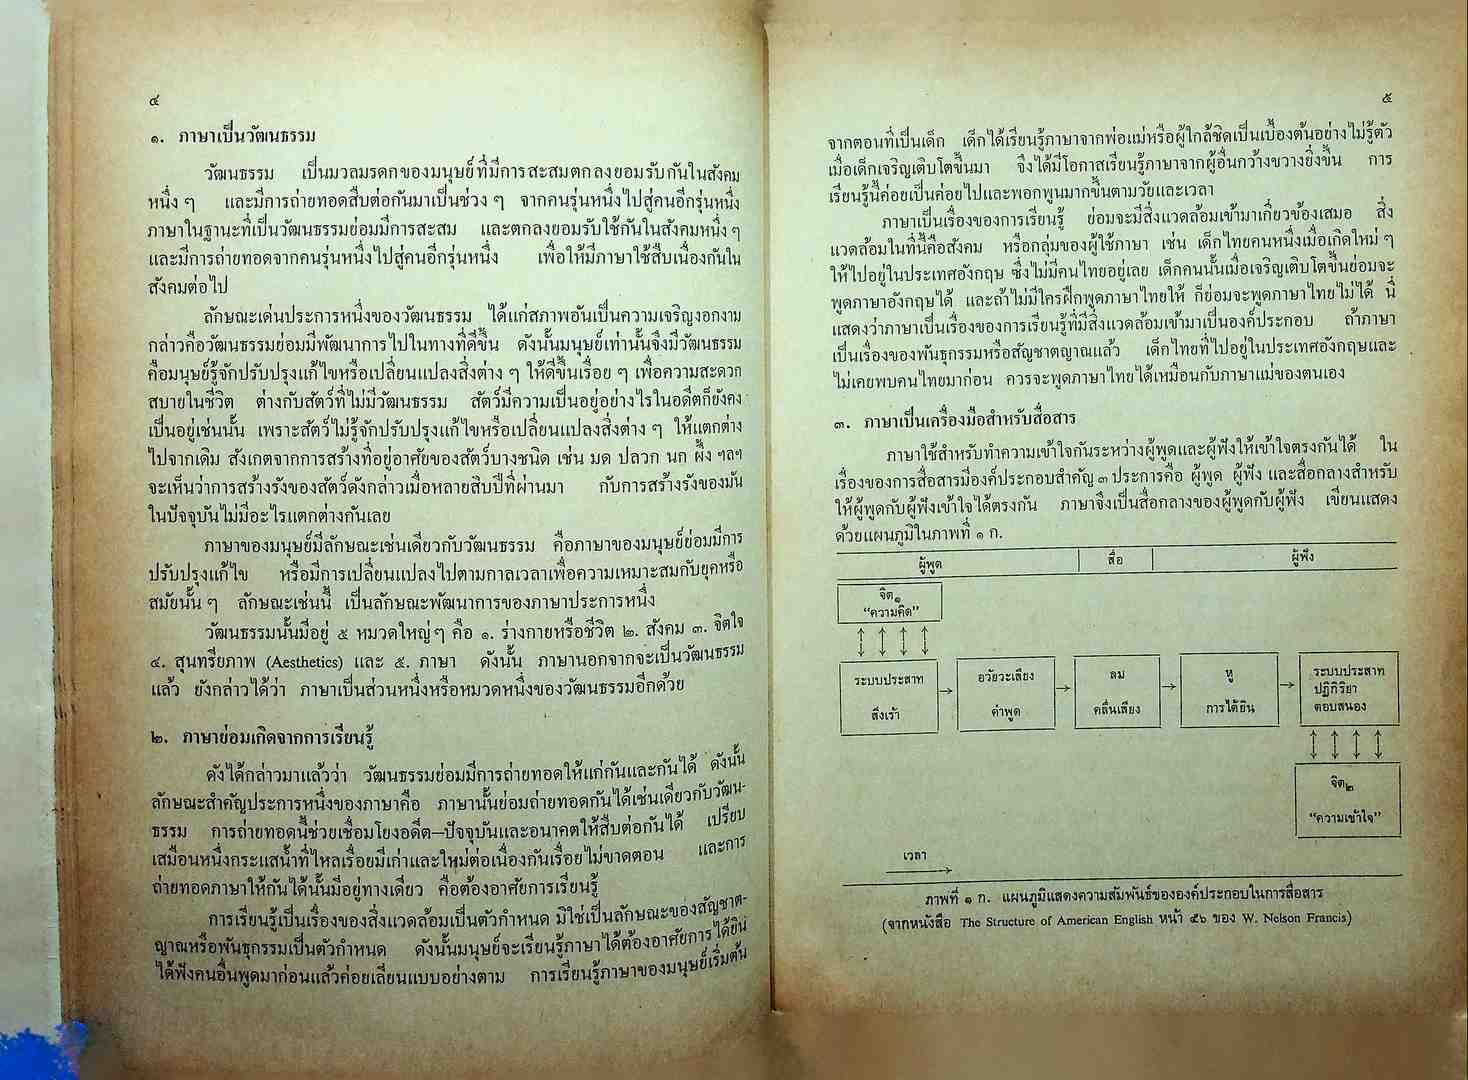 ๔
๑. ภาษาเป็นวัฒนธรรม
วัฒนธรรม เป็นมวลมรดกของมนุษย์ที่มีการสะสมตกลงยอมรับกันในสังคม
หนึ่ง ๆ และมีการถ่ายทอดสืบต่อกันมาเป็นช่วง ๆ จากคนรุ่นหนึ่งไปสู่คนอีกรุ่นหนึ่ง
ภาษาในฐานะที่เป็นวัฒนธรรมย่อมมีการสะสม และตกลงยอมรับใช้กันในสังคมหนึ่ง ๆ
และมีการถ่ายทอดจากคนรุ่นหนึ่งไปสู่คนอีกรุ่นหนึ่ง เพื่อให้มีภาษาใช้สืบเนื่องกันใน
สังคมต่อไป
ลักษณะเด่นประการหนึ่งของวัฒนธรรม ได้แก่สภาพอันเป็นความเจริญงอกงาม
กล่าวคือวัฒนธรรมย่อมมีพัฒนาการไปในทางที่ดีขึ้น ดังนั้นมนุษย์เท่านั้นจึงมีวัฒนธรรม
คือมนุษย์รู้จักปรับปรุงแก้ไขหรือเปลี่ยนแปลงสิ่งต่าง ๆ ให้ดีขึ้นเรื่อย ๆ เพื่อความสะดวก
สบายในชีวิต ต่างกับสัตว์ที่ไม่มีวัฒนธรรม สัตว์มีความเป็นอยู่อย่างไรในอดีตก็ยังคง
เป็นอยู่เช่นนั้น เพราะสัตว์ไม่รู้จักปรับปรุงแก้ไขหรือเปลี่ยนแปลงสิ่งต่าง ๆ ให้แตกต่าง
ไปจากเดิม สังเกตจากการสร้างที่อยู่อาศัยของสัตว์บางชนิด เช่น มด ปลวก นก ผึ้ง ฯลฯ
จะเห็นว่าการสร้างรังของสัตว์ดังกล่าวเมื่อหลายสิบปีที่ผ่านมา กับการสร้างรังของมัน
ในปัจจุบันไม่มีอะไรแตกต่างกันเลย
ภาษาของมนุษย์มีลักษณะเช่นเดียวกับวัฒนธรรม คือภาษาของมนุษย์ย่อมมีการ
ปรับปรุงแก้ไข หรือมีการเปลี่ยนแปลงไปตามกาลเวลาเพื่อความเหมาะสมกับยุคหรือ
สมัยนั้น ๆ ลักษณะเช่นนี้ เป็นลักษณะพัฒนาการของภาษาประการหนึ่ง
วัฒนธรรมนั้นมีอยู่ ๕ หมวดใหญ่ๆ คือ ๑. ร่างกายหรือชีวิต ๒. สังคม ๓. จิตใจ
๔. สุนทรียภาพ (Aesthetics) และ ๕. ภาษา ดังนั้น ภาษานอกจากจะเป็นวัฒนธรรม
แล้ว ยังกล่าวได้ว่า ภาษาเป็นส่วนหนึ่งหรือหมวดหนึ่งของวัฒนธรรมอีกด้วย
๒. ภาษาย่อมเกิดจากการเรียนรู้
ดังได้กล่าวมาแล้วว่า วัฒนธรรมย่อมมีการถ่ายทอดให้แก่กันและกันได้ ดังนั้น
ลักษณะสำคัญประการหนึ่งของภาษาคือ ภาษานั้นย่อมถ่ายทอดกันได้เช่นเดียวกับวัฒน-
ธรรม การถ่ายทอดนี้ช่วยเชื่อมโยงอดีต—ปัจจุบันและอนาคตให้สืบต่อกันได้ เปรียบ
เสมือนหนึ่งกระแสน้ำที่ไหลเรื่อยมีเก่าและใหม่ต่อเนื่องกันเรื่อยไม่ขาดตอน และการ
ถ่ายทอดภาษาให้กันได้นั้นมีอยู่ทางเดียว คือต้องอาศัยการเรียนรู้
การเรียนรู้เป็นเรื่องของสิ่งแวดล้อมเป็นตัวกำหนด มิใช่เป็นลักษณะของสัญชาต-
ญาณหรือพันธุกรรมเป็นตัวกำหนด ดังนั้นมนุษย์จะเรียนรู้ภาษาได้ต้องอาศัยการได้ยิน
ได้ฟังคนอื่นพูดมาก่อนแล้วค่อยเลียนแบบอย่างตาม การเรียนรู้ภาษาของมนุษย์เริ่มต้น
๕
จากตอนที่เป็นเด็ก เด็กได้เรียนรู้ภาษาจากพ่อแม่หรือผู้ใกล้ชิดเป็นเบื้องต้นอย่างไม่รู้ตัว
เมื่อเด็กเจริญเติบโตขึ้นมา จึงได้มีโอกาสเรียนรู้ภาษาจากผู้อื่นกว้างขวางยิ่งขึ้น การ
เรียนรู้นี้ค่อยเป็นค่อยไปและพอกพูนมากขึ้นตามวัยและเวลา
ภาษาเป็นเรื่องของการเรียนรู้ ย่อมจะมีสิ่งแวดล้อมเข้ามาเกี่ยวข้องเสมอ สิ่ง
แวดล้อมในที่นี้คือสังคม หรือกลุ่มของผู้ใช้ภาษา เช่น เด็กไทยคนหนึ่งเมื่อเกิดใหม่ ๆ
ให้ไปอยู่ในประเทศอังกฤษ ซึ่งไม่มีคนไทยอยู่เลย เด็กคนนั้นเมื่อเจริญเติบโตขึ้นย่อมจะ
พูดภาษาอังกฤษได้ และถ้าไม่มีใครฝึกพูดภาษาไทยให้ ก็ย่อมจะพูดภาษาไทยไม่ได้ นี่
แสดงว่าภาษาเป็นเรื่องของการเรียนรู้ที่มีสิ่งแวดล้อมเข้ามาเป็นองค์ประกอบ ถ้าภาษา
เป็นเรื่องของพันธุกรรมหรือสัญชาตญาณแล้ว เด็กไทยที่ไปอยู่ในประเทศอังกฤษและ
ไม่เคยพบคนไทยมาก่อน ควรจะพูดภาษาไทยได้เหมือนกับภาษาแม่ของตนเอง
๓. ภาษาเป็นเครื่องมือสำหรับสื่อสาร
ภาษาใช้สำหรับทำความเข้าใจกันระหว่างผู้พูดและผู้ฟังให้เข้าใจตรงกันได้ ใน
เรื่องของการสื่อสารมีองค์ประกอบสำคัญ ๓ ประการคือ ผู้พูด ผู้ฟัง และสื่อกลางสำหรับ
ให้ผู้พูดกับผู้ฟังเข้าใจได้ตรงกัน ภาษาจึงเป็นสื่อกลางของผู้พูดกับผู้ฟัง เขียนแสดง
ด้วยแผนภูมิในภาพที่ ๑ ก.
ผู้พูด สื่อ ผู้ฟัง
จิต๑
“ความคิด”
ระบบประสาท
สิ่งเร้า
อวัยวะเสียง
คำพูด
ลม
คลื่นเสียง
หู
การได้ยิน
ระบบประสาท
ปฏิกิริยา
ตอบสนอง
จิต๒
“ความเข้าใจ”
เวลา
ภาพที่ ๑ ก. แผนภูมิแสดงความสัมพันธ์ขององค์ประกอบในการสื่อสาร
(จากหนังสือ The Structure of American English หน้า ๕๖ ของ W. Nelson Francis)